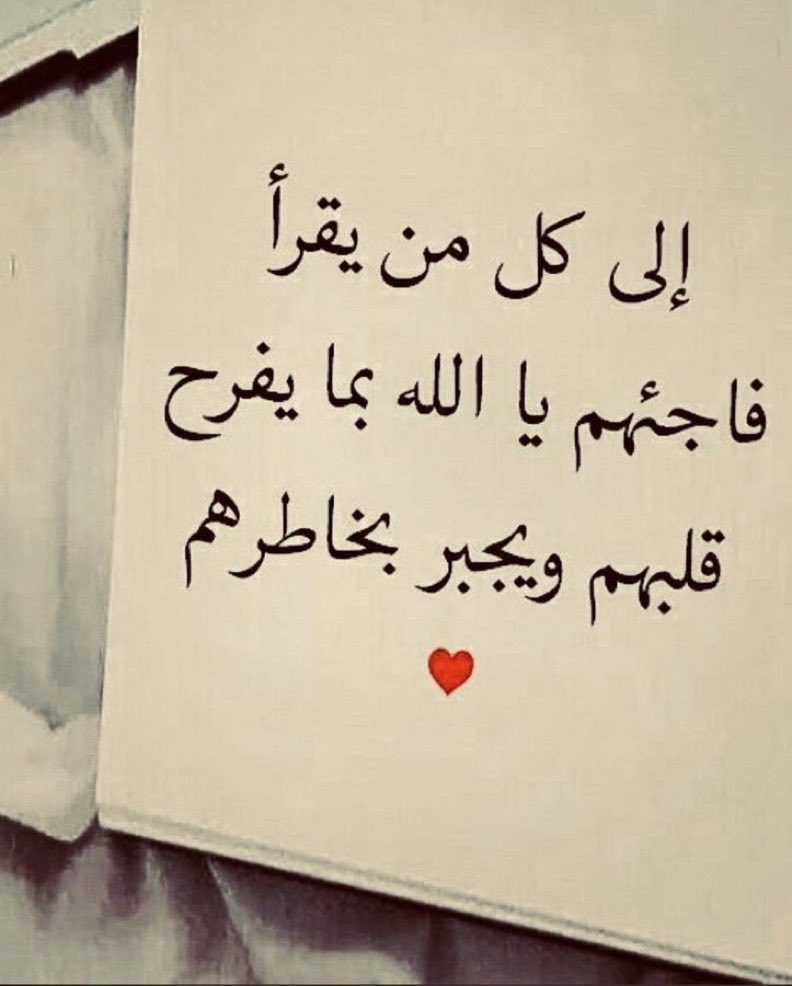 إلى كل من يقرأ
فاجئهم يا الله بما يفرح
قلبهم ويجبر بخاطرهم
♥